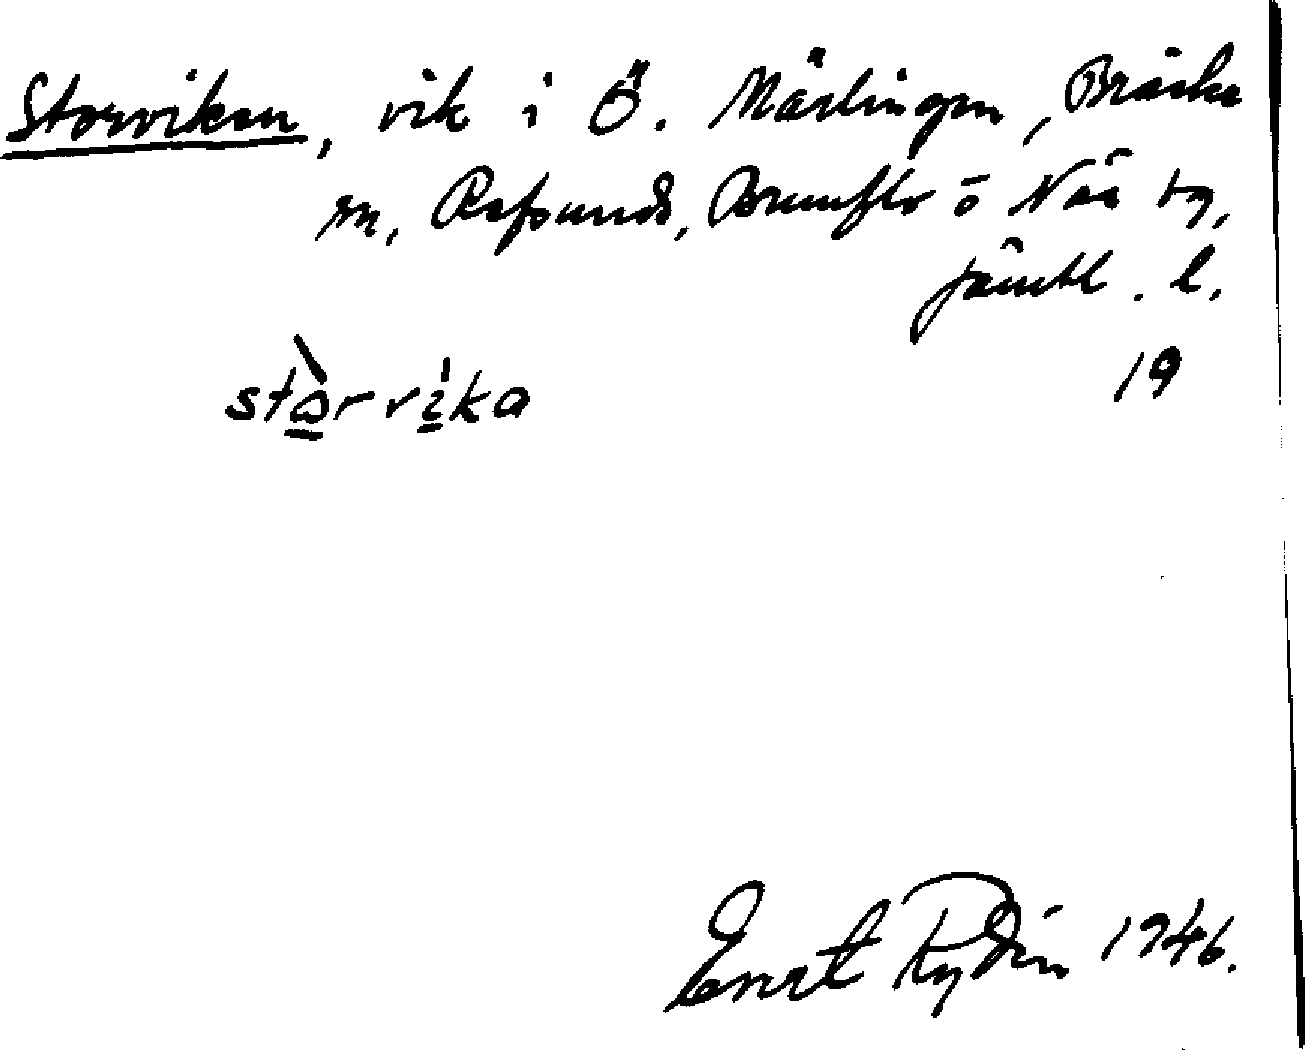 Storviken, vik i Ö. Mårlingen, Bräcke
sn, Refsunds, Brunflo o Näs tg,
Jämtl. l.
19
stòrvika
Ernst Rydin 1946.